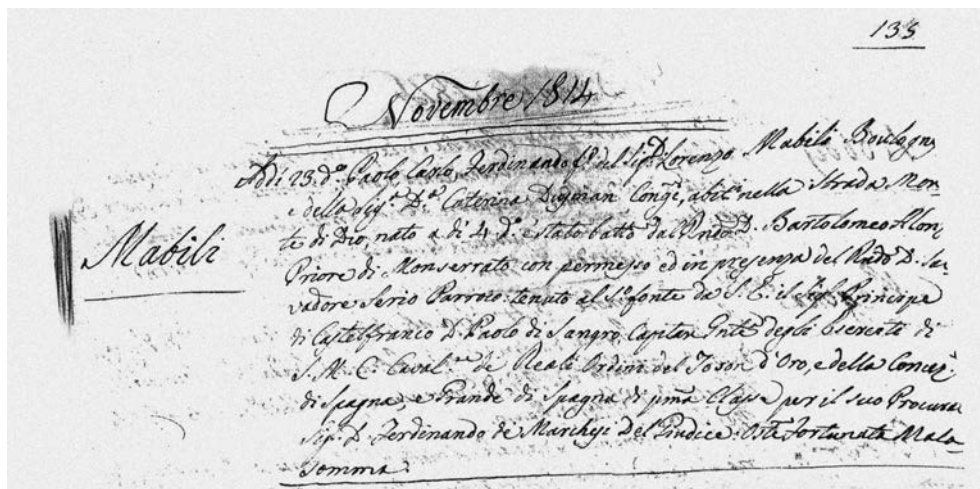 135
Novembre 1814
Mabili
Addi 23 d.o Paolo Carlo, Ferdinando f.o del Sig.r D. Lorenzo Mabili Boulogny
e della Sig.a D.a Caterina Digman Cong.i, abit.i nella Strada Mon-
te di Dio, nato a di 4 d.o è stato batt.o dal Rndo D. Bartolomeo
Priore di Monserrato con permesso ed in presenza del Rndo D. Sa-
vadore Serio Parroco: tenuto al S. fonte da S. E. il Sig.r Principe
di Castelfranco D. Paolo di Sangro, Capitan Gnle degli Eserciti di
S. M. C. Caval.re de Reali Ordini del Toson d'Oro, e della Concez.
di Spagna, e Grande di Spagna di pma Classe per il suo Procura
Sig.r D. Ferdinando de Marchesi Del Giudice: Ost.e Fortunata Mala
somma.